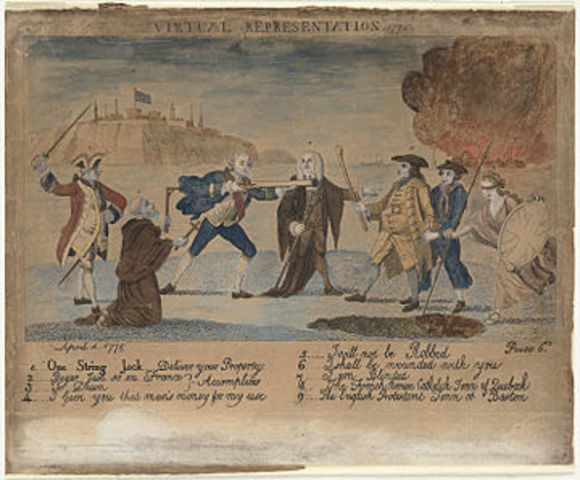 VIRTUAL REPRESENTATION. 1775.
April 1. 1775
Price 6
1. One String Jack. Deliver your Property
2. Accomplices
4. I Give you that man's money for my use
5 .... I will not be Robbed
6. I shall be wounded with you
7. I am Blinded
8. The French Roman Catholick Town of Quebeck
9. The English Protestant Town of Boston